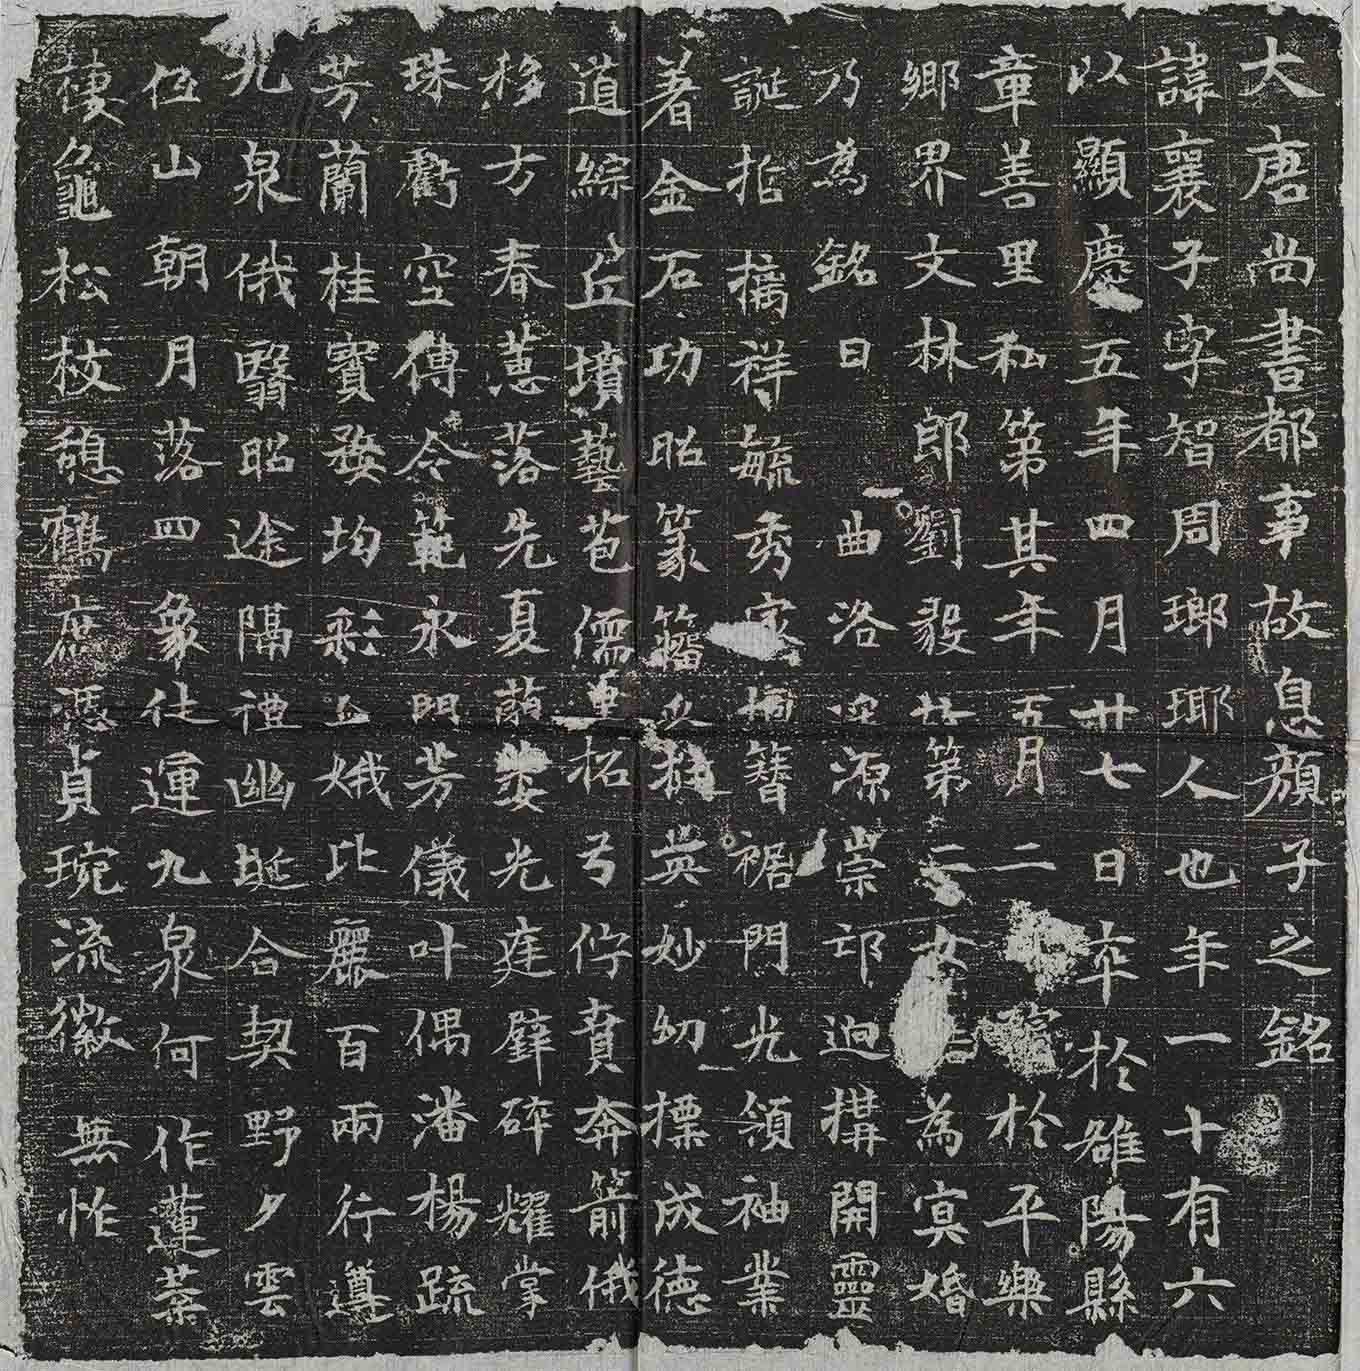 大唐尚書都事故息顏子之銘
諱襄子字智周瑯瑘人也年一十有六
以顯慶五年四月廿七日卒於雒陽縣
章善里私第其年五月二於平樂
鄉界文林郎劉毅第二女為㝠婚
乃為銘曰曲洛深源崇邙迥構開靈
誕哲摛祥毓秀家摛簪裾門光領袖業
著金石功昭篆籀英妙幼摽成德
道綜丘墳藝苞儒墨拓弓佇賁奔箭俄
移方春蕙落先夏蘭萎光蓗璧碎耀掌
珠虧空傳令範永閟芳儀叶偶潘楊疏
芳蘭桂寶婺均彩娥比麗百兩行遵
九泉俄翳昭途隔禮幽埏合契野夕雲
低山朝月落四象仕運九泉何作蓮茱
棲龜松杖憩鶴庶憑貞琬流徽無怍